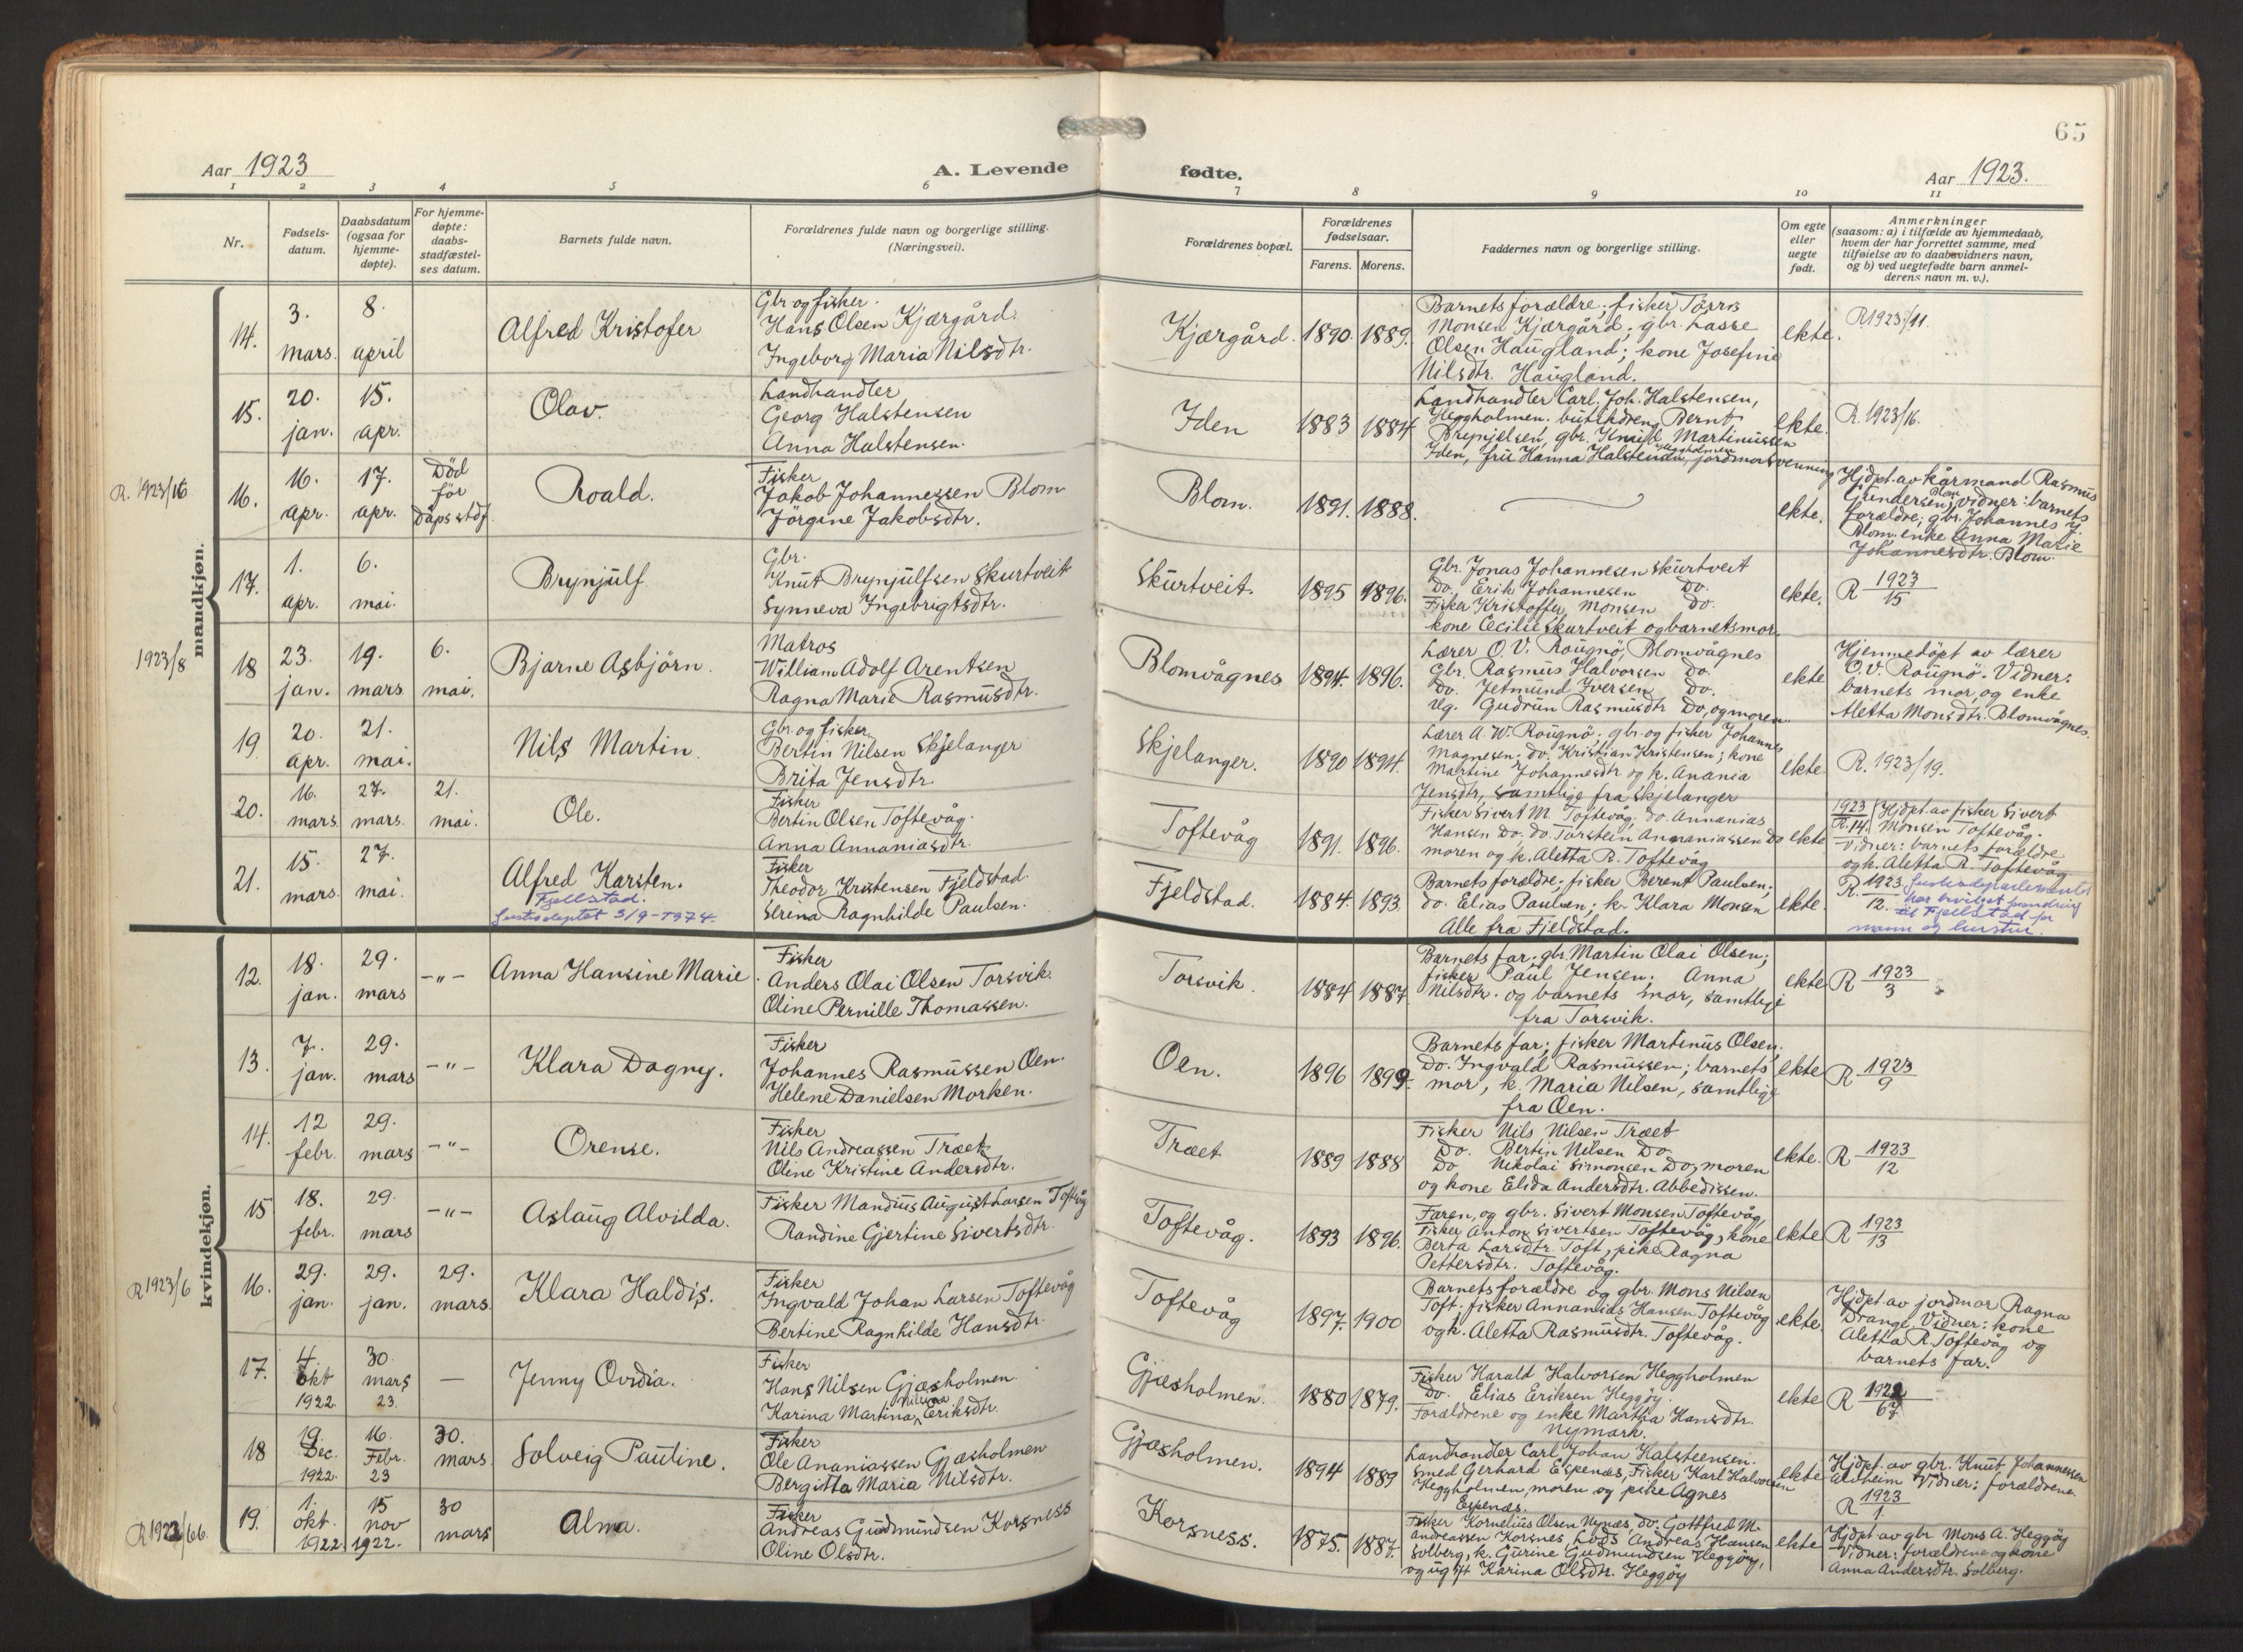 65
Aar 1923
A. Levende
fødte.
Aar 1923.
1 2 3 4 5 6 7 8 9 10 11
Nr.
Fødsels-
datum.
Daabsdatum
(ogsaa for
hjemme-
døpte).
For hjemme-
døpte:
daabs-
stadfæstel-
ses datum.
Barnets fulde navn.
Forældrenes fulde navn og borgerlige stilling.
(Næringsvei).
Forældrenes bopæl.
Forældrenes
fødselsaar.
Farens. Morens.
Faddernes navn og borgerlige stilling.
Om egte
eller
uegte
født.
Anmerkninger
(saasom: a) i tilfælde av hjemmedaab,
hvem der har forrettet samme, med
tilføielse av to daabsvidners navn,
og b) ved uegtefødte barn anmel-
derens navn m. v.).
mandkjøn.
14.
3.
mars.
8.
april
Alfred Kristofer
Gbr og fisker.
Hans Olsen Kjærgård.
Ingeborg Maria Nilsdtr.
Kjærgård.
1890. 1889.
Barnets forældre; fisker Torris
Monsen Kjærgård; gbr. Lasse
Olsen Haugland; kone Josefine
Nilsdtr. Haugland.
ekte.
R1923/11.
15.
20.
jan.
15.
apr.
Olav.
Landhandler
Georg Halstensen
Anna Halstensen.
Iden
1883 1884
Landhandler Carl. Joh. Halstensen,
Heggholmen. butikdreng Bernt
Brynjelsen, gbr. Knut Martinussen
Heggholmen
Iden, frú Hanna Halstensen, jordmor
ekte.
R. 1923/16.
R. 1923/16
16.
16.
apr.
17.
apr.
Död
för
Dåpsstdf.
Roald.
Fisker
Jakob Johannessen Blom
Jörgine Jakobsdtr.
Blom.
1891. 1888.
ekte.
Hjdpt. av kårmand Rasmus
Gundersen Blom, vidner: barnets
forældre; gbr. Johannes J.
Blom, enke Anna Marie
Johannesdtr. Blom.
17.
1.
apr.
6.
mai.
Brynjulf
Gbr.
Knut Brynjulfsen Skurtveit
Synneva Ingebrigtsdtr.
Skurtveit.
1895 1896.
Gbr. Jonas Johannesen Skurtveit
Do. Erik Johannesen Do.
Fisker Kristoffer Monsen Do.
kone Cecilie Skurtveit og barnets mor.
ekte.
R 1923/15
1923/8
18
23.
jan.
19.
mars
6.
mai.
Bjarne Asbjörn.
Matros
William Adolf Arentsen
Ragna Marie Rasmusdtr.
Blomvågnes
1894. 1896.
Lærer O. V. Rougnø, Blomvågnes
Gbr. Rasmus Halvorsen Do.
Do. Jetmund Iversen Do.
Ug. Gudrun Rasmusdtr Do, og moren.
ekte
Hjemmedöpt av lærer
O. V. Rougnø. Vidner:
barnets mor, og enke
Aletta Monsdtr. Blomvågnes.
19
20.
apr.
21.
mai.
Nils Martin.
Gbr. og fisker.
Bertin Nilsen Skjelanger
Brita Jensdtr.
Skjelanger.
1890 1894.
Lærer A. W. Rougnø. gbr. og fisker Johannes
Magnesen. do. Kristian Kristensen; kone
Martine Johannesdtr og k. Anania
Jensdtr, samtlige fra Skjelanger
ekte.
R. 1923/19.
20.
16.
mars.
27.
mars.
21.
mai.
Ole.
Fisker
Bertin Olsen Toftevåg.
Anna Annaniasdtr.
Toftevåg
1891. 1896.
Fisker Sivert M. Toftevåg, do. Annanias
Hansen Do, do. Torstein Annaniassen Do
moren og k. Aletta R. Toftevåg
ekte
1923/R.14. Hjdpt. av fisker Sivert
Monsen Toftevåg.
Vidner: barnets forældre
og k. Aletta R. Toftevåg
21.
15.
mars.
27.
mai.
Alfred Karsten.
Fjellstad.
Justisdeptet 3/9-1974.
Fisker
Theodor Kristensen Fjeldstad.
Serina Ragnhilde Paulsen.
Fjeldstad.
1884. 1893.
Barnets forældre; fisker Berent Paulsen;
do. Elias Paulsen; k. Klara Monsen
Alle fra Fjeldstad.
ekte.
R. 1923/12. Justisdepartementet
har bevilget forandring
til Fjellstad for
mann og hustru.
kvindekjøn.
12.
18.
jan.
29.
mars
-"-
Anna Hansine Marie.
Fisker
Anders Olai Olsen Torsvik.
Oline Pernille Thomassen.
Torsvik.
1884 1887
Barnets far. gbr. Martin Olai Olsen;
fisker Paul Jensen; Anna
Nilsdtr. og barnets mor, samtlige
fra Torsvik.
ekte
R 1923/3
13.
7.
jan.
29.
mars
-"-
Klara Dagny.
Fisker
Johannes Rasmussen Oen.
Helene Danielsen Morken.
Oen.
1896 1899.
Barnets far; fisker Martinus Olsen.
Do. Ingvald Rasmussen; barnets
mor, k. Maria Nilsen, samtlige
fra Oen.
ekte
R 1923/9
14.
12
febr.
29.
mars
-"-
Orense.
Fisker
Nils Andreassen Træet
Oline Kristine Andersdtr.
Træet
1889 1888
Fisker Nils Nilsen Træet
Do. Bertin Nilsen Do
Do Nikolai Simonsen Do, moren
og kone Elida Andersdtr. Abbedissen.
ekte.
R 1923/12
15
18.
febr.
29.
mars
-"-
Aslaug Alvilda.
Fisker Mandius August Larsen Toftevåg
Randine Gjertine Sivertsdtr.
Toftevåg.
1893 1896.
Faren, og gbr. Sivert Monsen Toftevåg,
Fisker Anton Sivertsen Toftevåg, kone
Berta Larsdtr. Toft, pike Ragna
Pettersdtr. Toftevåg.
ekte
R 1923/13
R 1923/6
16.
29.
jan.
29.
jan.
29.
mars.
Klara Haldis.
Fisker
Ingvald Johan Larsen Toftevåg
Bertine Ragnhilde Hansdtr.
Toftevåg
1897. 1900
Barnets forældre og gbr. Mons Nilsen
Toft. fisker Annanias Hansen Toftevåg
og k. Aletta Rasmusdtr. Toftevåg.
ekte.
Hjdpt. av jordmor Ragna
Drange. Vidner: kone
Aletta R. Toftevåg og
barnets far.
17.
4.
okt
1922
30.
mars
23.
—
Jenny Ovidia.
Fisker
Hans Nilsen Gjæsholmen.
Karina Martina Eriksdtr.
Gjæsholmen.
1880 1879.
Fisker Harald Halvorsen Heggholmen
Do. Elias Eriksen Heggøy.
Forældrene og enke Martha Hansdtr.
Nymark.
ekte
R 1922/67
18
19.
Dec.
1922.
16.
Febr.
23
30.
mars
Solveig Pauline.
Fisker
Ole Ananiassen Gjæsholmen
Bergitta Maria Nilsdtr.
Gjæsholmen.
1894 1889
Landhandler Carl Johan Halsteensen.
Smed Gerhard Espenæs, Fisker Karl Halvorsen
Heggholmen, moren og pike Agnes
Espenæs.
ekte
Hjdpt. av gbr. Knut Johannessen
Alvheim Vidner: forældrene.
R 1923/1
R 1922/66.
19.
1.
okt.
1922
15
nov
1922.
30
mars
Alma.
Fisker
Andreas Gudmundsen Korsness
Oline Olsdtr.
Korsness.
1875. 1887.
Fisker Kornelius Olsen Nynæs, do. Gottfred M.
Andreassen Korsnes, Lods Andreas Hansen
Solberg, k. Gurine Gudmundsen Heggøy,
og ugift Karina Olsdtr. Heggøy
ekte
Hjdpt. av gbr Mons A. Heggøy
Vidner: forældrene og kone
Anna Andersdtr. Solberg.